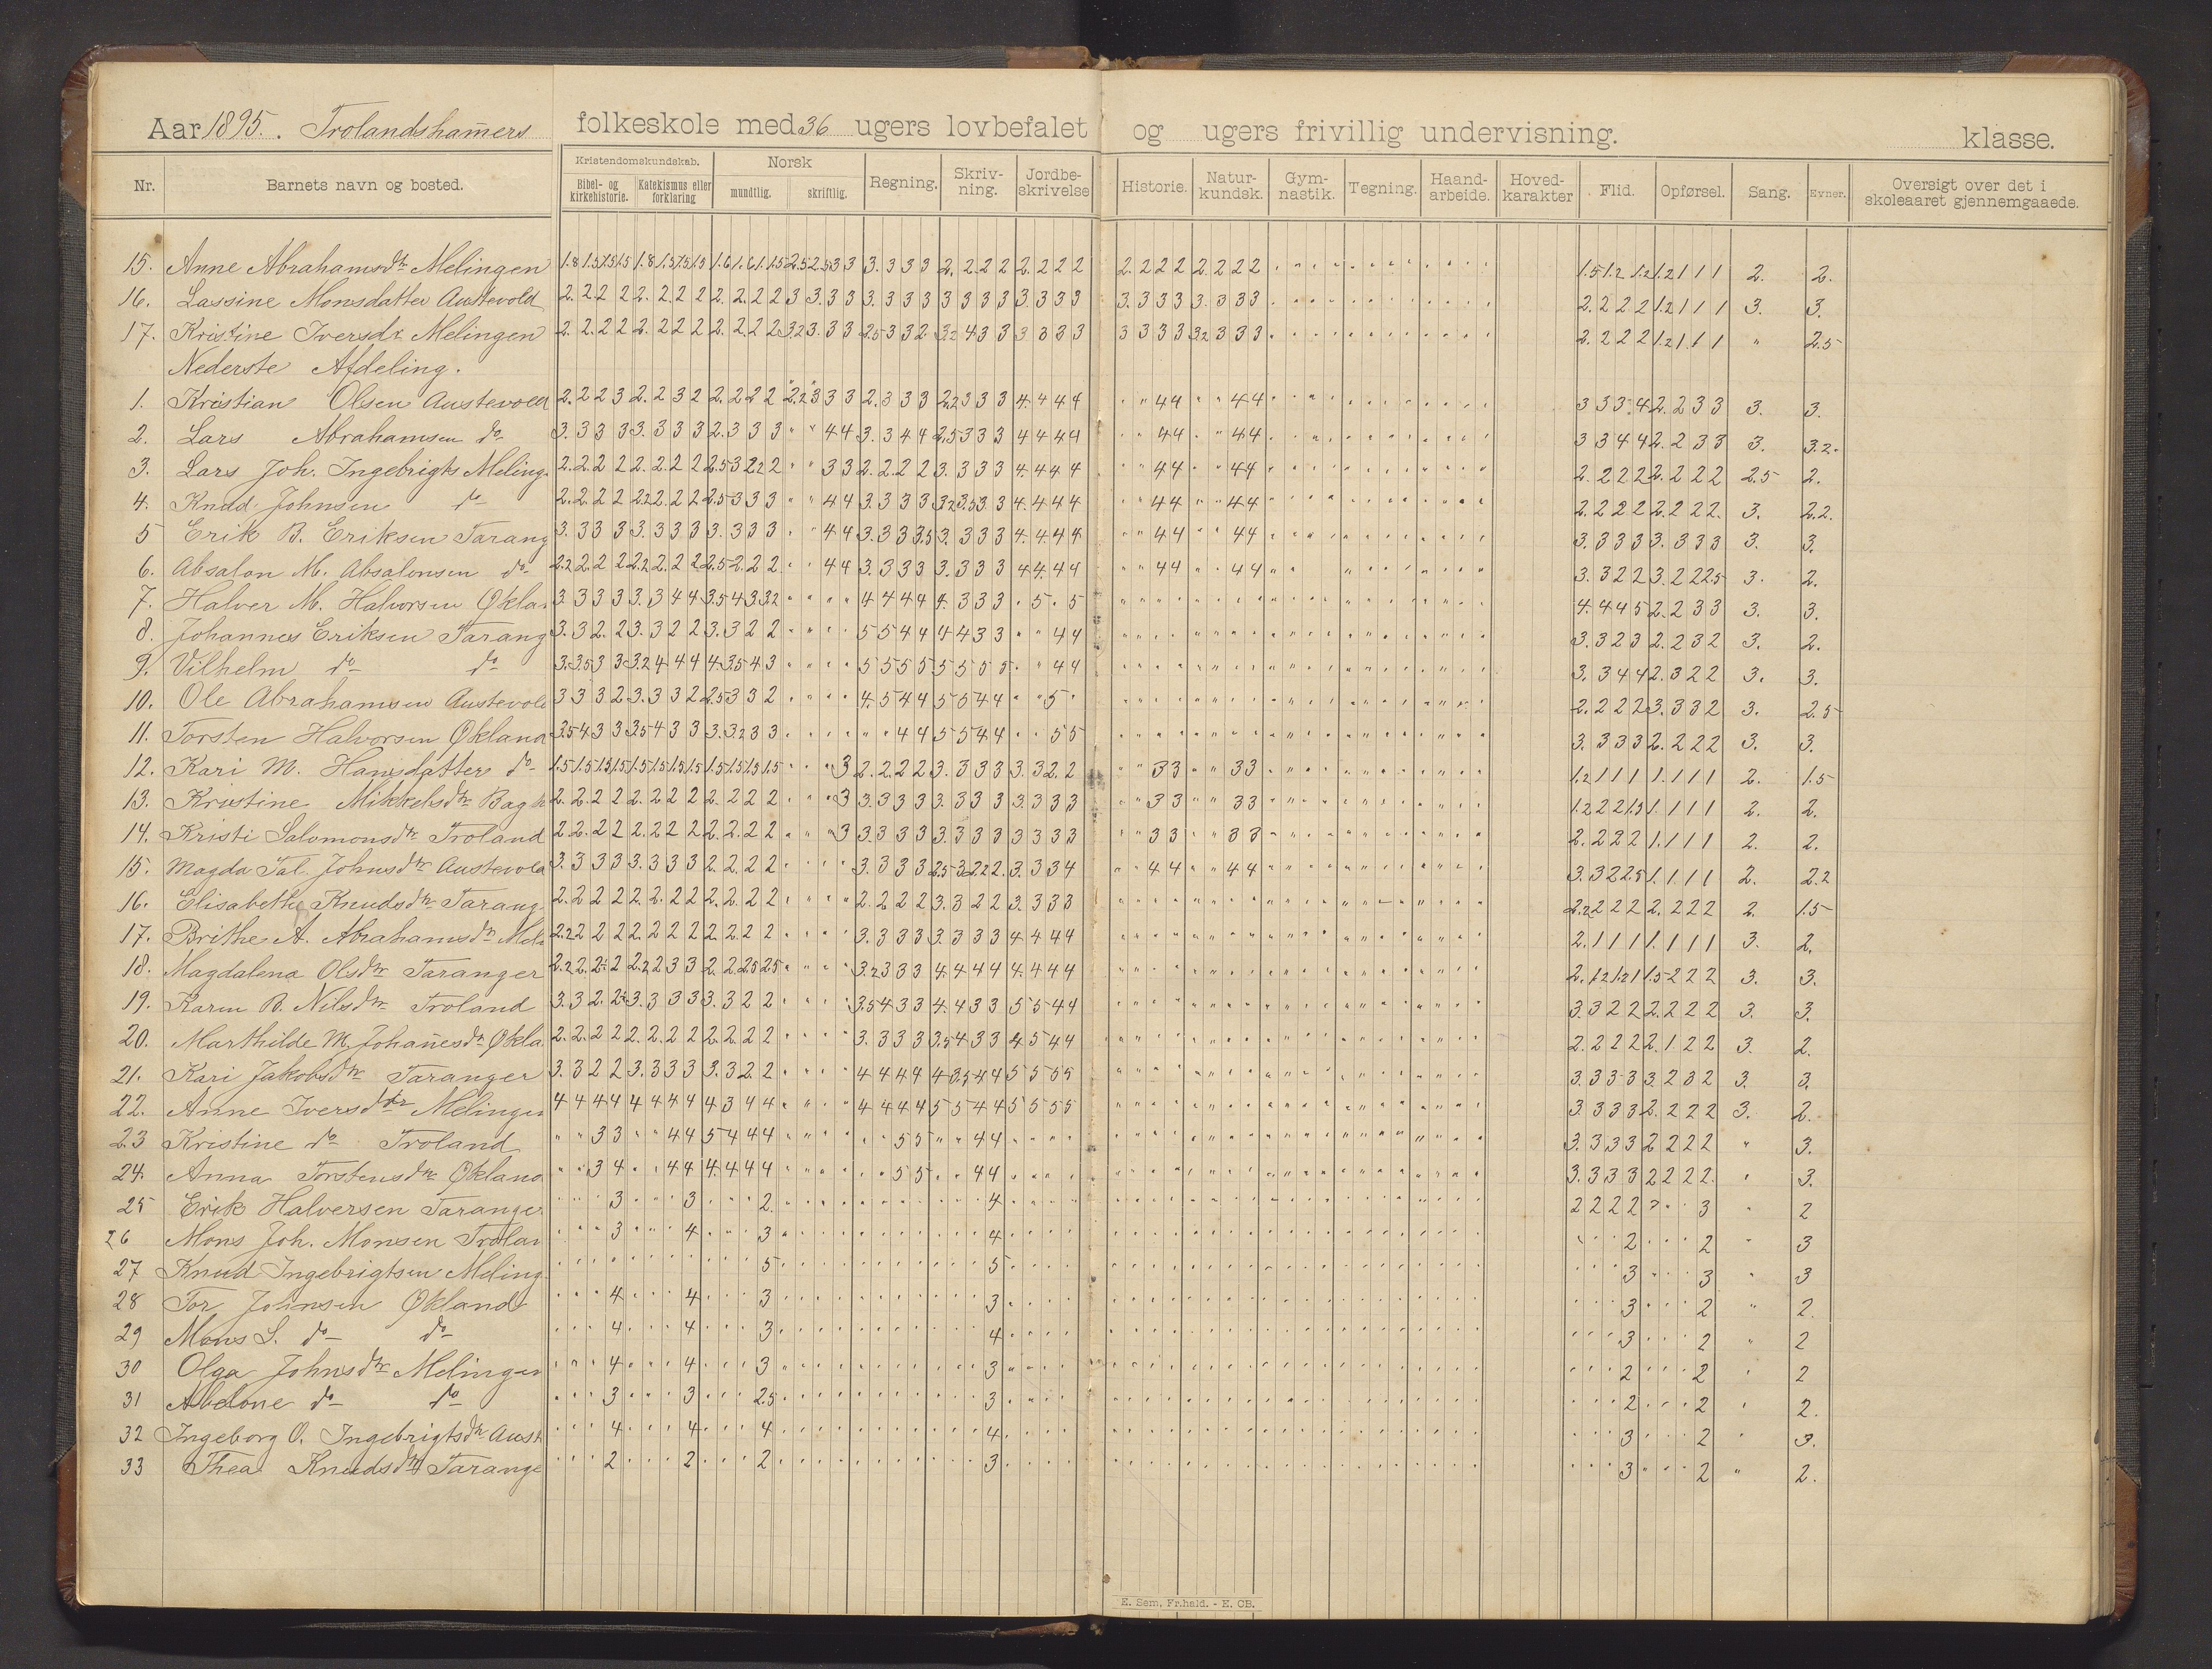 Aar 1895. Trolandshamers folkeskole med 36 ugers lovbefalet og ugers frivillig undervisning. klasse.
Nr. Barnets navn og bosted. Kristendomskundskab. Bibel- og kirkehistorie. Katekismus eller forklaring Norsk mundtlig. skriftlig. Regning. Skriv-ning. Jordbe-skrivelse Historie. Natur-kundsk. Gym-nastik. Tegning. Haand-arbeide. Hoved-karakter Flid. Opførsel. Sang. Evner. Oversigt over det i skoleaaret gjennemgaaede.
15. Anne Abrahamsdtr Melingen 2. 2 2 2 2. 2 2 2 2. 2.
16. Lassine Monsdatter Austevold 2. 2 2 2 2. 2 2 2 2. 2. 2 2 3 3. 3 3 3. 3 3 3 3 3 3 3 3. 3 3 3 3. 3 3 3 3. 3 3 3 2. 2 2 2 1.2 1 1 1 3. 3.
17. Kristine Iversdr Melingen 2. 2. 2 2 2. 2 2 2 2. 2 2 2 3.2 3. 3 3 2.5 3 3 2. 3.2 4 3 3 3 3 3 3 3 3 3 3 3.2 3 3 3 2. 2 2 2 1.2 1 1 1 " 2.5
Nederste Afdeling.
1. Kristian Olsen Austevold 2. 2 2 3 2. 2 3 2 2. 2 2 2 2.2 3 3 3 2. 3 3 3 2.2 3 3 3 4. 4 4 4 " " 4 4 " " 4 4 3 3 3 4 2. 2 3 3 3. 3.
2. Lars Abrahamsen do 3. 3 3 3 3. 3 3 3 2. 3 3 3 " " 4 4 3. 3 4 4 2.5 3 3 3 4 4 4 4 " " 4 4 " " 4 4 3 3 4 4 2. 2 3 3 3. 3.2.
3. Lars Joh. Ingebrigts Meling. 2. 2. 2 2 2. 2. 2 2 2.5 3 2.2 2 " " 3 3 2. 2. 2 2 3. 3 3 3 4. 4. 4 4 " " 4 4 " " 4 4 2. 2 2 2 2. 2 2 2 2.5 2.
4. Knud Johnsen do 2. 2. 2 2 2.2 2. 2 2 2.5 3 3 3 " " 4 4 3. 3 3 3 3.2 3.5 3 3 4. 4 4 4 " " 4 4 " " 4 4 2. 2 2 2 2. 2 2 2. 3. 2.2.
5 Erik B. Eriksen Tarang 3. 3 3 3 3. 3 3 3 3. 3 3 3 " " 4 4 3. 3 3 3.5 3. 3 3 3 4. 4. 4 4 " " 4 4 " " 4 4 3. 3 3 3 3. 3 3 3 3. 3.
6. Absalon M. Absalonsen do 2.2 2. 2 2 2.2 2. 2 2 2.5 2. 2 2 " " 4 4 3. 3 3 3 3. 3 3 3 4 4. 4 4 " " 4 4 " " 4 4 3. 3 2 2 3. 2 2 2.5 3. 2.
7. Halver M. Halvorsen Økla 3 3 3 3 3. 3 4 4 3.5 4 3 3.2 4 4 4 4 4. 3 3 3 . 5 . 5 4. 4 4 5 2. 2 3 3 3. 3.
8. Johannes Eriksen Tarang 3. 3 2. 2 3. 3 2 2 3. 3 2 2 5 5 4 4 4 4 3 3 " " 4 4 3. 3 2 3 2. 2 3 2 3. 2.
9. Vilhelm do do 3. 3.5 3 3 3.2 4 4 4 4. 3.5 4 3 5 5 5 5 5 5 5 5 " " 4 4 3. 3 4 4 2. 3 2 2 3. 3.
10. Ole Abrahamsen Austevold 3 3 3 2 3. 3 3 2 2.5 3 3 2 4. 5 4 4 5 5 4 4 " " 5 " 2. 2 2 2 3. 3 3 2 3. 2.5
11. Torsten Halvorsen Økland 3.5 4 3 3 3.5 4 3 3 3. 3.2 3 3 " " 4 4 5 5 4 4 " " 5 5 3. 3 3 3 2. 2 2 2 3. 3.
12. Kari M. Hansdatter do 1.5 1.5 1.5 1.5 1.5 1.5 1.5 1.5 1.5 1.5 1.5 1.5 3 2. 2. 2 2 3. 3 3 3 3. 3 2. 2 " " 3 3 " " 3 3 1.2 1 1 1 1. 1 1 1 2. 1.5
13. Kristine Mikkelsdtr Bagh 2. 2. 2 2 2. 2 2 2 2. 2 2 2 3 3. 3 3 3 3. 3 3 3 3. 3 3 3 " " 3 3 " " 3 3 1.2 2 2 1.5 1. 1 1 1 2. 2.
14. Kristi Salomonsdtr Troland 2. 2. 2 2 2. 2 2 2 2. 2. 2 2 3 3. 3 3 3 3. 3 3 3 3 3 3 3 " " 3 3 " " 3 3 2. 2 2 2 1. 1 1 1 2. 2.
15. Magda Tal. Johnsdtr Austevold 3. 3 3 3 3. 3 3 3 2. 2. 2 2 3. 3 3 3 2.5 3 2.2 2. 3. 3 3 4 " " 4 4 " " 4 4 3. 3 2 2.5 1. 1 1 1 2. 2.2
16. Elisabethe Knudsdtr Tarang. 2. 2. 2 2 2. 2. 2 2 2. 2. 2 2 2. 2 2 2 3. 3 2 2 3. 3 3 3 2.2 2 2 2 2. 2 2 2 2. 1.5
17. Brithe A. Abrahamsdtr Meli 2.2 2 2 2 2. 2 2 2 2. 2. 2 2 3. 3 3 3 3. 3 3 3 4. 4 4 4 2. 1 1 1 1. 1 1 1 3. 2.
18. Magdalena Olsdtr Taranger 2.2 2. 2 2 2.2 2 3 3 2. 2 2.5 2.5 3.2 3 3 3 4. 4 4 4 4. 4 4 4 2. 1.2 1.2 1 1.5 2 2 2 3. 3.
19. Karen B. Nilsdtr Troland 3. 3 2. 2 3. 3 3 3 3. 3 2 2 3.5 4 3 3 4. 4 3 3 5 5 4 4 3. 3 2 2 2. 2 2 2 3. 3.
20. Marthilde M. Johanesdtr Økla. 2. 2. 2 2 2. 2. 2 2 2. 2. 2 2 3. 3 3 3 3.5 4 3 3 4. 5 4 4 2. 2 2 2 2. 1 2 2 3. 2.
21. Kari Jakobsdtr Taranger 3. 3 2 2 3. 3 3 3 3. 3 2. 2 4 4 4 4 4 3.5 4 4 5 5 5 5 3. 3 3 3 3. 2 3 2 3. 3.
22. Anne Iversdtr Melingen 4 4 4 4 4 4 4 4 4 3 4 4 4 4 4 4 5 5 4 4 5 5 5 5 3. 3 3 3 2. 2 2 2 3. 2.
23 Kristine do Troland " " 3 3 " " 4 4 5 4 4 4 " " 5 5 " " 4 4 3. 3 3 3 2 2 2 2 " 3.
24. Anna Torstensdtr Økland " " 3 4 " " 4 4 4. 4 4 4 " " 5 5 " " 4 4 3. 3 3 3 2 2 2 2. " 3.
25 Erik Halversen Taranger 3 3 2. 4 2 2 2 2 3 " 2
26 Mons Joh. Monsen Trolan 3 4 3 4 2 2 " 3
27 Knud Ingebrigtsen Meling. 5 5 3 3 " 3
28 Tor Johnsen Økland 4 4 3 3 3 2 " 2.
29 Mons S. do do 4 4 3 4 3 2 " 2
30 Olga Johnsdtr Melingen 4 4 3 3 2 2 " 2
31 Abelone do do 3 3 2.5 3 2 2 " 2.
32 Ingeborg O. Ingebrigtsdtr Aust 4 4 4 4 3 2 " 3.
33 Thea Knudsdtr Tarange 2 2 2 3 3 2 " 2.
E. Sem, Fr.hald. - E. CB.